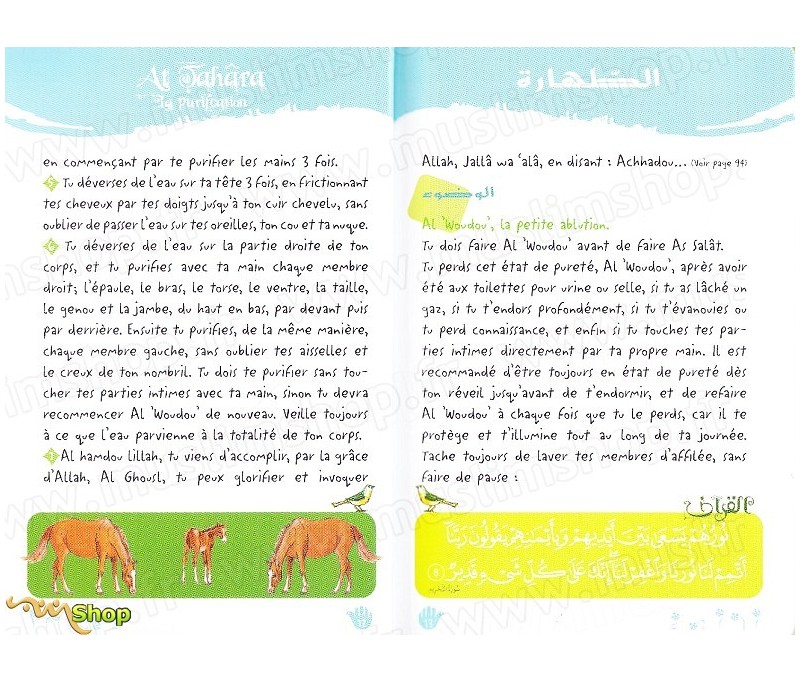 At Tahâra
La purification
en commençant par te purifier les mains 3 fois.
5 Tu déverses de l'eau sur ta tête 3 fois, en frictionnant
tes cheveux par tes doigts jusqu'à ton cuir chevelu, sans
oublier de passer l'eau sur tes oreilles, ton cou et ta nuque.
6 Tu déverses de l'eau sur la partie droite de ton
corps, et tu purifies avec ta main chaque membre
droit; l'épaule, le bras, le torse, le ventre, la taille,
le genou et la jambe, du haut en bas, par devant puis
par derrière. Ensuite tu purifies, de la même manière,
chaque membre gauche, sans oublier tes aisselles et
le creux de ton nombril. Tu dois te purifier sans tou-
cher tes parties intimes avec ta main, sinon tu devra
recommencer Al 'Woudou' de nouveau. Veille toujours
à ce que l'eau parvienne à la totalité de ton corps.
7 Al hamdou lillah, tu viens d'accomplir, par la grâce
d'Allah, Al Ghousl, tu peux glorifier et invoquer
Shop
12
الطهارة
Allah, Jallâ wa 'alâ, en disant : Achhadou... (Voir page 94)
الوضوء
Al 'Woudou', la petite ablution.
Tu dois faire Al 'Woudou' avant de faire As Salât.
Tu perds cet état de pureté, Al 'Woudou', après avoir
été aux toilettes pour urine ou selle, si tu as lâché un
gaz, si tu t'endors profondément, si tu t'évanouies ou
tu perd connaissance, et enfin si tu touches tes par-
ties intimes directement par ta propre main. Il est
recommandé d'être toujours en état de pureté dès
ton réveil jusqu'avant de t'endormir, et de refaire
Al 'Woudou' à chaque fois que tu le perds, car il te
protège et t'illumine tout au long de ta journée.
Tache toujours de laver tes membres d'affilée, sans
faire de pause :
القرآن
نُورُهُمْ يَسْعَى بَيْنَ أَيْدِيهِمْ وَبِأَيْمَانِهِمْ يَقُولُونَ رَبَّنَا
أَتْمِمْ لَنَا نُورَنَا وَاغْفِرْ لَنَا إِنَّكَ عَلَى كُلِّ شَيْءٍ قَدِيرٌ
سورة التحريم
13
www.muslimshop.fr